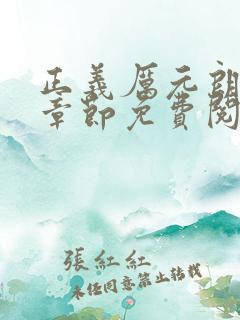 正義厲元朗
章節免費閱
張紅紅
未經同意禁止轉載